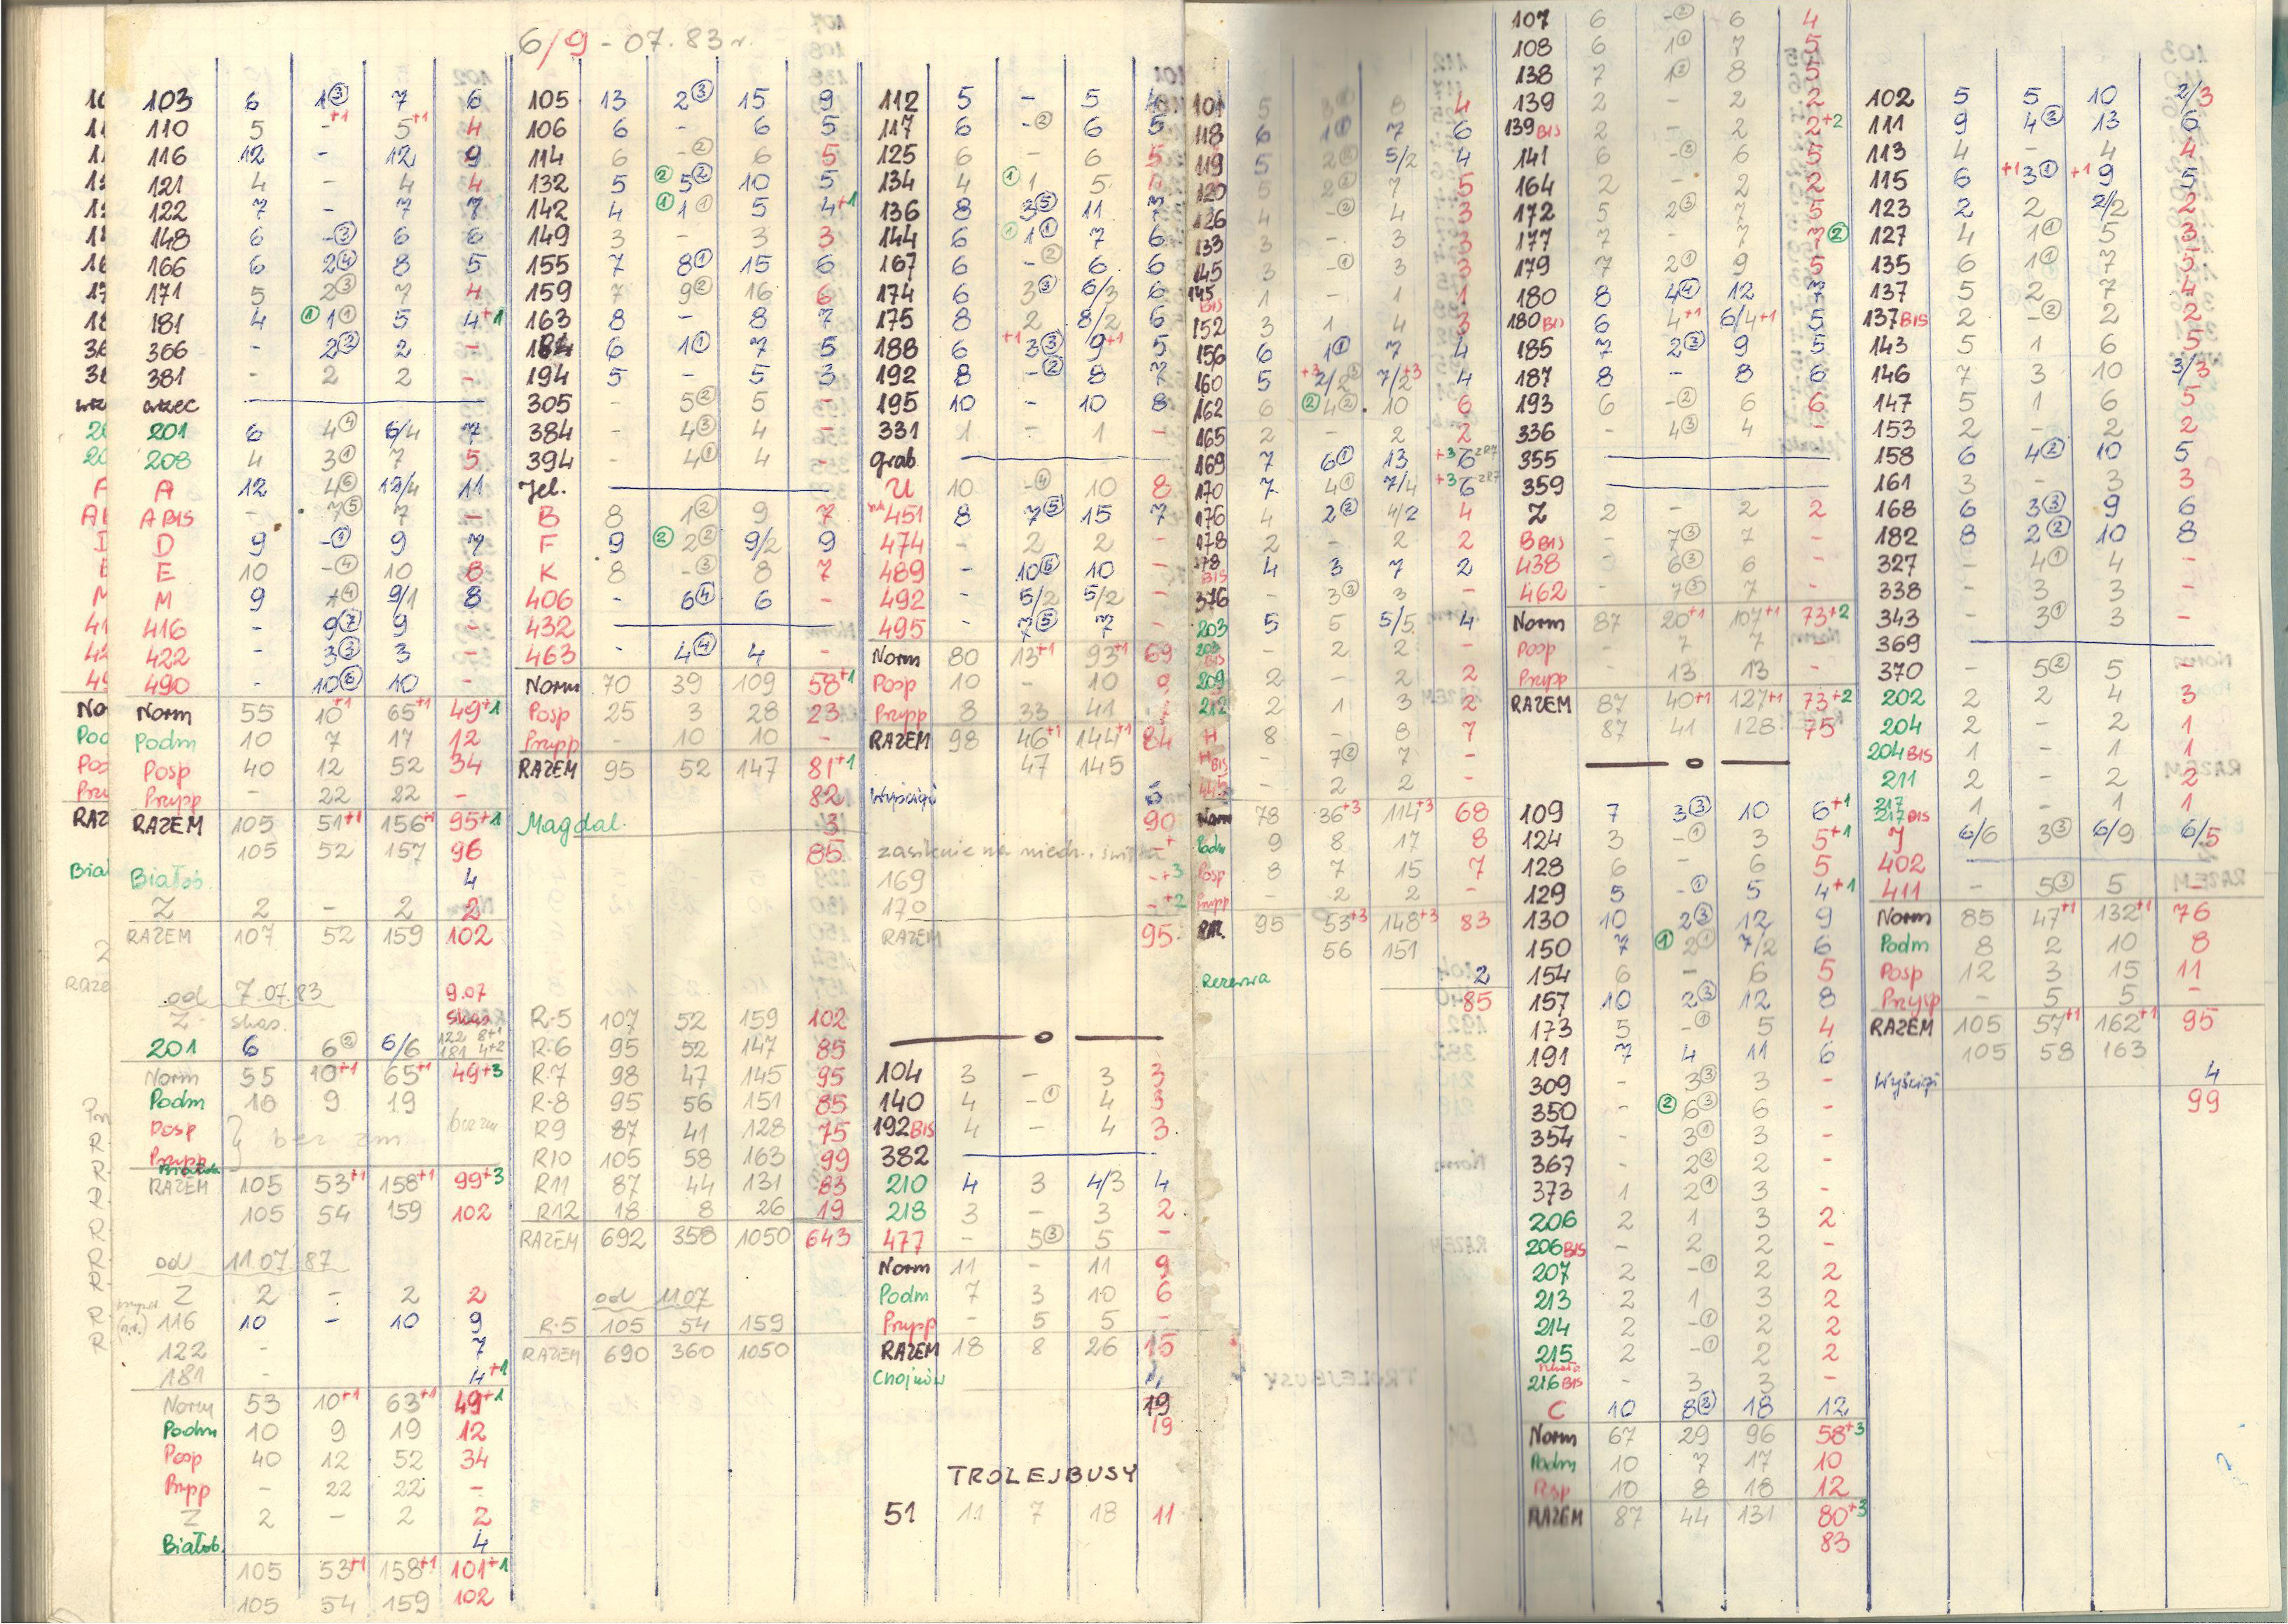 6/9 - 07.83 r.
103 6 1③ 7 6
110 5 -+1 5+1 4
116 12 - 12 9
121 4 - 4 4
122 7 - 7 7
148 6 -③ 6 6
166 6 2④ 8 5
171 5 2③ 7 4
181 4 ①1① 5 4+1
366 - 2② 2 -
381 - 2 2 -
wrzec
201 6 4④ 6/4 7
208 4 3① 7 5
A 12 4⑥ 12/4 11
A BIS - 7⑤ 7 -
D 9 -① 9 7
E 10 -④ 10 8
M 9 1④ 9/1 8
416 - 9⑦ 9 -
422 - 3③ 3 -
490 - 10⑥ 10 -
Norm 55 10+1 65+1 49+1
Podm 10 7 17 12
Posp 40 12 52 34
Przypp - 22 22 -
RAZEM 105 51+1 156+1 95+1
105 52 157 96
Białob. 4
Z 2 - 2 2
RAZEM 107 52 159 102
od 7.07.83 9.07
Z - skas. skas
201 6 6② 6/6 122 8+1
181 4+2
Norm 55 10+1 65+1 49+3
Podm 10 9 19
Posp } bez zm bez zm
Przypp
Białob.
RAZEM 105 53+1 158+1 99+3
105 54 159 102
od 11.07.87
Z 2 - 2 2
116 10 - 10 9
122 - 7
181 - 4+1
Norm 53 10+1 63+1 49+1
Podm 10 9 19 12
Posp 40 12 52 34
Przypp - 22 22 -
Z 2 - 2 2
Białob. 4
105 53+1 158+1 101+1
105 54 159 102
105 13 2③ 15 9
106 6 - 6 5
114 6 -② 6 5
132 5 ②5② 10 5
142 4 ①1① 5 4+1
149 3 - 3 3
155 7 8① 15 6
159 7 9② 16 6
163 8 - 8 7
184 6 1① 7 5
194 5 - 5 3
305 - 5② 5 -
384 - 4③ 4 -
394 - 4① 4 -
Jel.
B 8 1② 9 7
F 9 ②2② 9/2 9
K 8 -③ 8 7
406 - 6④ 6 -
432
463 - 4④ 4 -
Norm 70 39 109 58+1
Posp 25 3 28 23
Przypp - 10 10 -
RAZEM 95 52 147 81+1
82
Magdal. 3
85
R-5 107 52 159 102
R-6 95 52 147 85
R-7 98 47 145 95
R-8 95 56 151 85
R9 87 41 128 75
R10 105 58 163 99
R11 87 44 131 83
R12 18 8 26 19
RAZEM 692 358 1050 643
od 11.07
R-5 105 54 159
RAZEM 690 360 1050
112 5 - 5 4
117 6 -② 6 5
125 6 - 6 5
134 4 ①1 5
136 8 3⑤ 11 7
144 6 ①1① 7 6
167 6 -② 6 6
174 6 3③ 6/3 6
175 8 2 8/2 6
188 6 +13③ 9+1 5
192 8 -② 8 7
195 10 - 10 8
331 1 - 1 -
grab.
U 10 -④ 10 8
451 8 7⑤ 15 7
474 - 2 2 -
489 - 10⑥ 10 -
492 - 5/2 5/2 -
495 - 7⑤ 7 -
Norm 80 13+1 93+1 69
Posp 10 - 10
Przypp 8 33 41 7
RAZEM 98 46+1 144+1 84
47 145
Wyścigi
90
zasilenie na niedz. i święta
169 -+3
170 -+2
RAZEM 95
104 3 - 3 3
140 4 -① 4 3
192BIS 4 - 4 3
382
210 4 3 4/3 4
218 3 - 3 2
477 - 5③ 5 -
Norm 11 - 11 9
Podm 7 3 10 6
Przypp - 5 5 -
RAZEM 18 8 26 15
Chojnów
19
19
TROLEJBUSY
51 11 7 18 11
101 5 3① 8 4
118 6 1① 7 6
119 5 5/2 4
120 5 7 5
126 4 -② 4 3
133 3 - 3 3
145 3 -① 3 3
145 BIS 1 - 1 1
152 3 1 4 3
156 6 1① 7 4
160 5 +32/2③ 7/2+3 4
162 6 ②4② 10 6
165 2 - 2 2
169 7 6① 13 +36 2R7
170 7 4① 7/4 +36 2R7
176 4 2② 4/2 4
178 2 - 2 2
178 BIS 4 3 7 2
376 - 3② 3 -
203 5 5 5/5 4
203 BIS - 2 2 -
209 2 - 2 2
212 2 1 3 2
H 8 - 8 7
H BIS - 7② 7 -
445 - 2 2 -
Norm 78 36+3 114+3 68
Podm 9 8 17 8
Posp 8 7 15 7
Przypp - 2 2 -
RAZ. 95 53+3 148+3 83
56 151
Rezerwa 2
85
107 6 -② 6 4
108 6 1① 7 5
138 7 1② 8 5
139 2 - 2 2
139BIS 2 - 2 2+2
141 6 -③ 6 5
164 2 - 2 2
172 5 2③ 7 5
177 7 - 7 7②
179 7 2① 9 5
180 8 4④ 12 7
180BIS 6 4+1 6/4+1 5
185 7 2③ 9 5
187 8 - 8 6
193 6 -② 6 6
336 - 4③ 4 -
355
359
Z 2 - 2 2
B BIS - 7③ 7 -
438 - 6③ 6 -
462 - 7⑤ 7 -
Norm 87 20+1 107+1 73+2
Posp - 7 7 -
Przypp - 13 13 -
RAZEM 87 40+1 127+1 73+2
87 41 128 75
109 7 3③ 10 6+1
124 3 -① 3 5+1
128 6 - 6 5
129 5 -① 5 4+1
130 10 2③ 12 9
150 7 ①2① 7/2 6
154 6 - 6 5
157 10 2③ 12 8
173 5 -① 5 4
191 7 4 11 6
309 - 3③ 3 -
350 - ②6③ 6 -
354 - 3① 3 -
367 - 2② 2 -
373 1 2① 3 -
206 2 1 3 2
206BIS - 2 2 -
207 2 -① 2 2
213 2 1 3 2
214 2 -① 2 2
215 2 -① 2 2
216 BIS - 3 3 -
C 10 8③ 18 12
Norm 67 29 96 58+3
Podm 10 7 17 10
Posp 10 8 18 12
RAZEM 87 44 131 80+3
83
102 5 5 10 2/3
111 9 4③ 13 6
113 4 - 4 4
115 6 +13① +19 5
123 2 2 2/2 2
127 4 1① 5 3
135 6 1① 7 5
137 5 2 7 4
137BIS 2 -② 2 2
143 5 1 6 5
146 7 3 10 3/3
147 5 1 6 5
153 2 - 2 2
158 6 4② 10 5
161 3 - 3 3
168 6 3③ 9 6
182 8 2② 10 8
327 - 4① 4 -
338 - 3 3 -
343 - 3① 3 -
369
370 - 5② 5 -
202 2 2 4 3
204 2 - 2 1
204BIS 1 - 1 1
211 2 - 2 2
217 BIS 1 - 1 1
J 6/6 3③ 6/9 6/5
402
411 - 5③ 5 -
Norm 85 47+1 132+1 76
Podm 8 2 10 8
Posp 12 3 15 11
Przysp - 5 5 -
RAZEM 105 57+1 162+1 95
105 58 163
Wyścigi 4
99